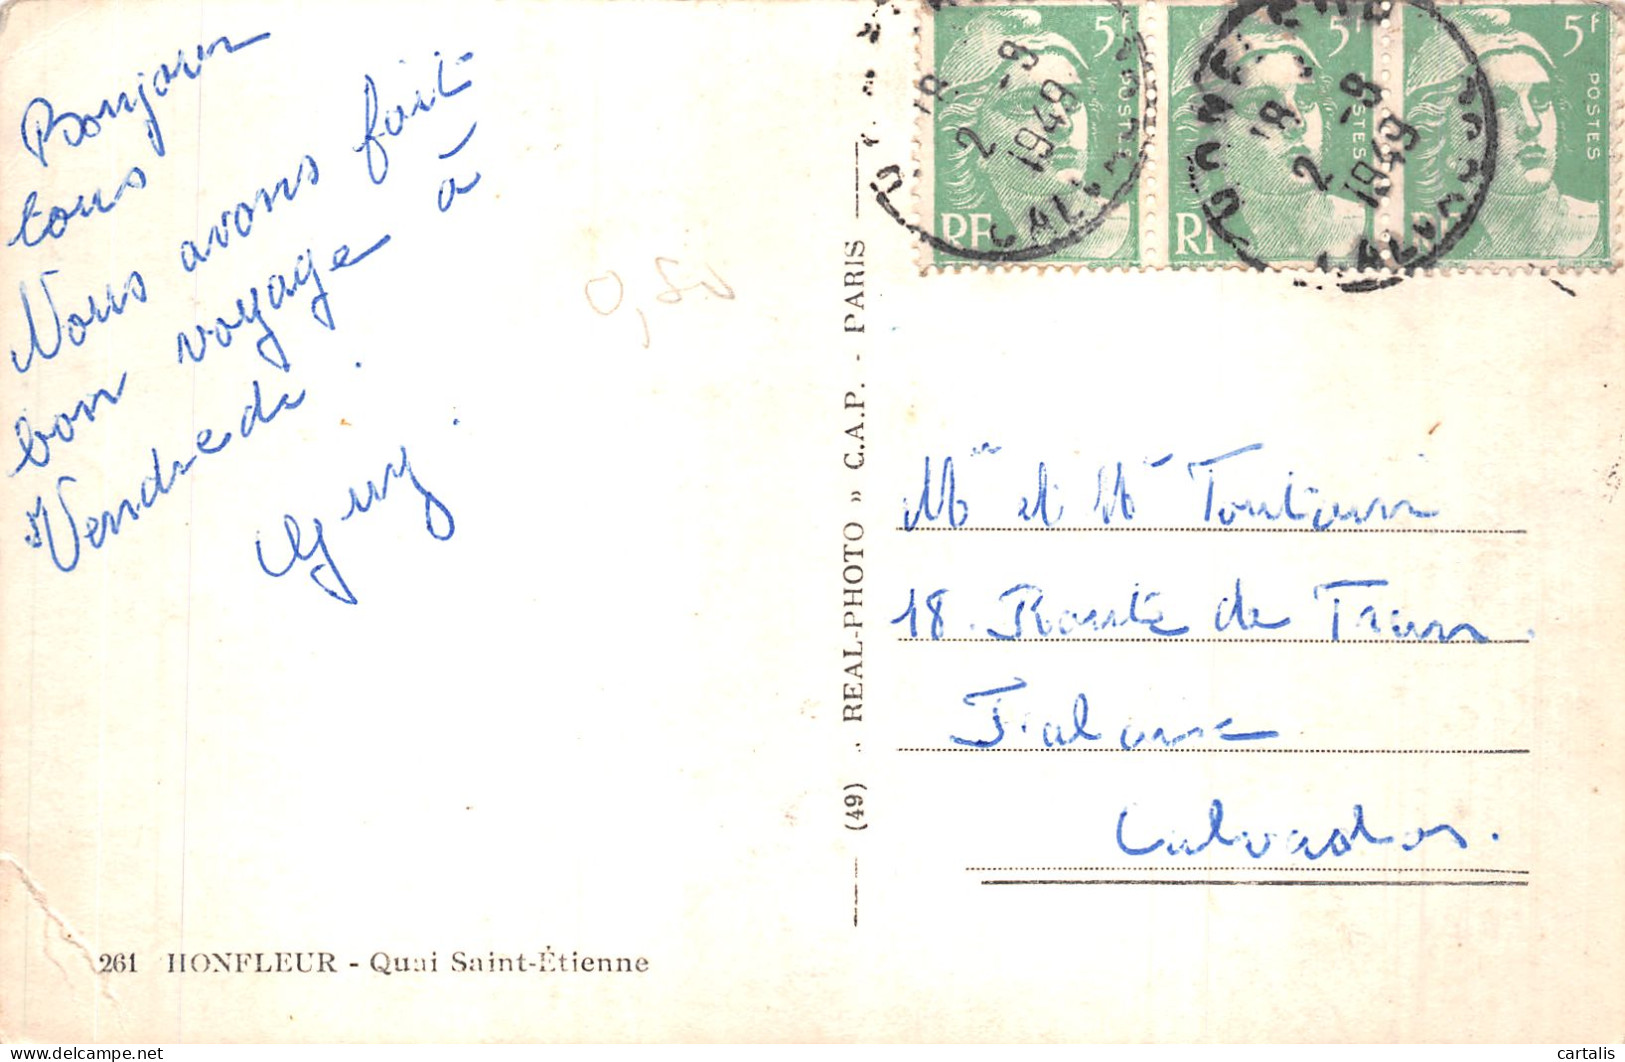 Bonjour
tous
Nous avons fait
bon voyage à
Vendredi.
Guy.
0,50
261 HONFLEUR - Quai Saint-Étienne
(49) „ REAL-PHOTO » C.A.P. - PARIS
5f POSTES RF
5f POSTES RF
5f POSTES RF
18
2 - 9
1949
CALVADOS
18
2 - 9
1949
CALVADOS
Mr et Me Toutain
18. Route de Trun.
Falaise
Calvados.
cartalis delcampe.net